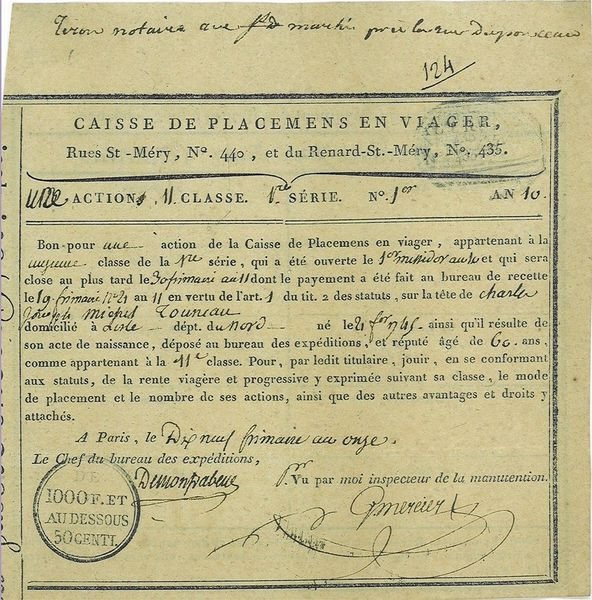 notaire marché près la rue
124
CAISSE DE PLACEMENS EN VIAGER,
Rues St-Méry, No. 440, et du Renard-St.-Méry, No. 435.
UNE ACTION, 11 CLASSE. 1re SÉRIE. No. 1er AN 10.
Bon-pour une action de la Caisse de Placemens en viager, appartenant à la
classe de la 1re série, qui a été ouverte le 1er messidor an 10 et qui sera
close au plus tard le 30 frimaire an 11 dont le payement a été fait au bureau de recette
le 19 frimaire an 11 en vertu de l'art. 1 du tit. 2 des statuts, sur la tête de charles
michel
domicilié à Lisle dépt. du nord né le 21 1745 ainsi qu'il résulte de
son acte de naissance, déposé au bureau des expéditions, et réputé âgé de 60 ans,
comme appartenant à la 11e classe. Pour, par ledit titulaire, jouir, en se conformant
aux statuts, de la rente viagère et progressive y exprimée suivant sa classe, le mode
de placement et le nombre de ses actions, ainsi que des autres avantages et droits y
attachés.
A Paris, le Dix neuf frimaire an onze.
Le Chef du bureau des expéditions,
Vu par moi inspecteur de la manutention.
mercier
1000 F. ET
AU DESSOUS
50 CENTI.